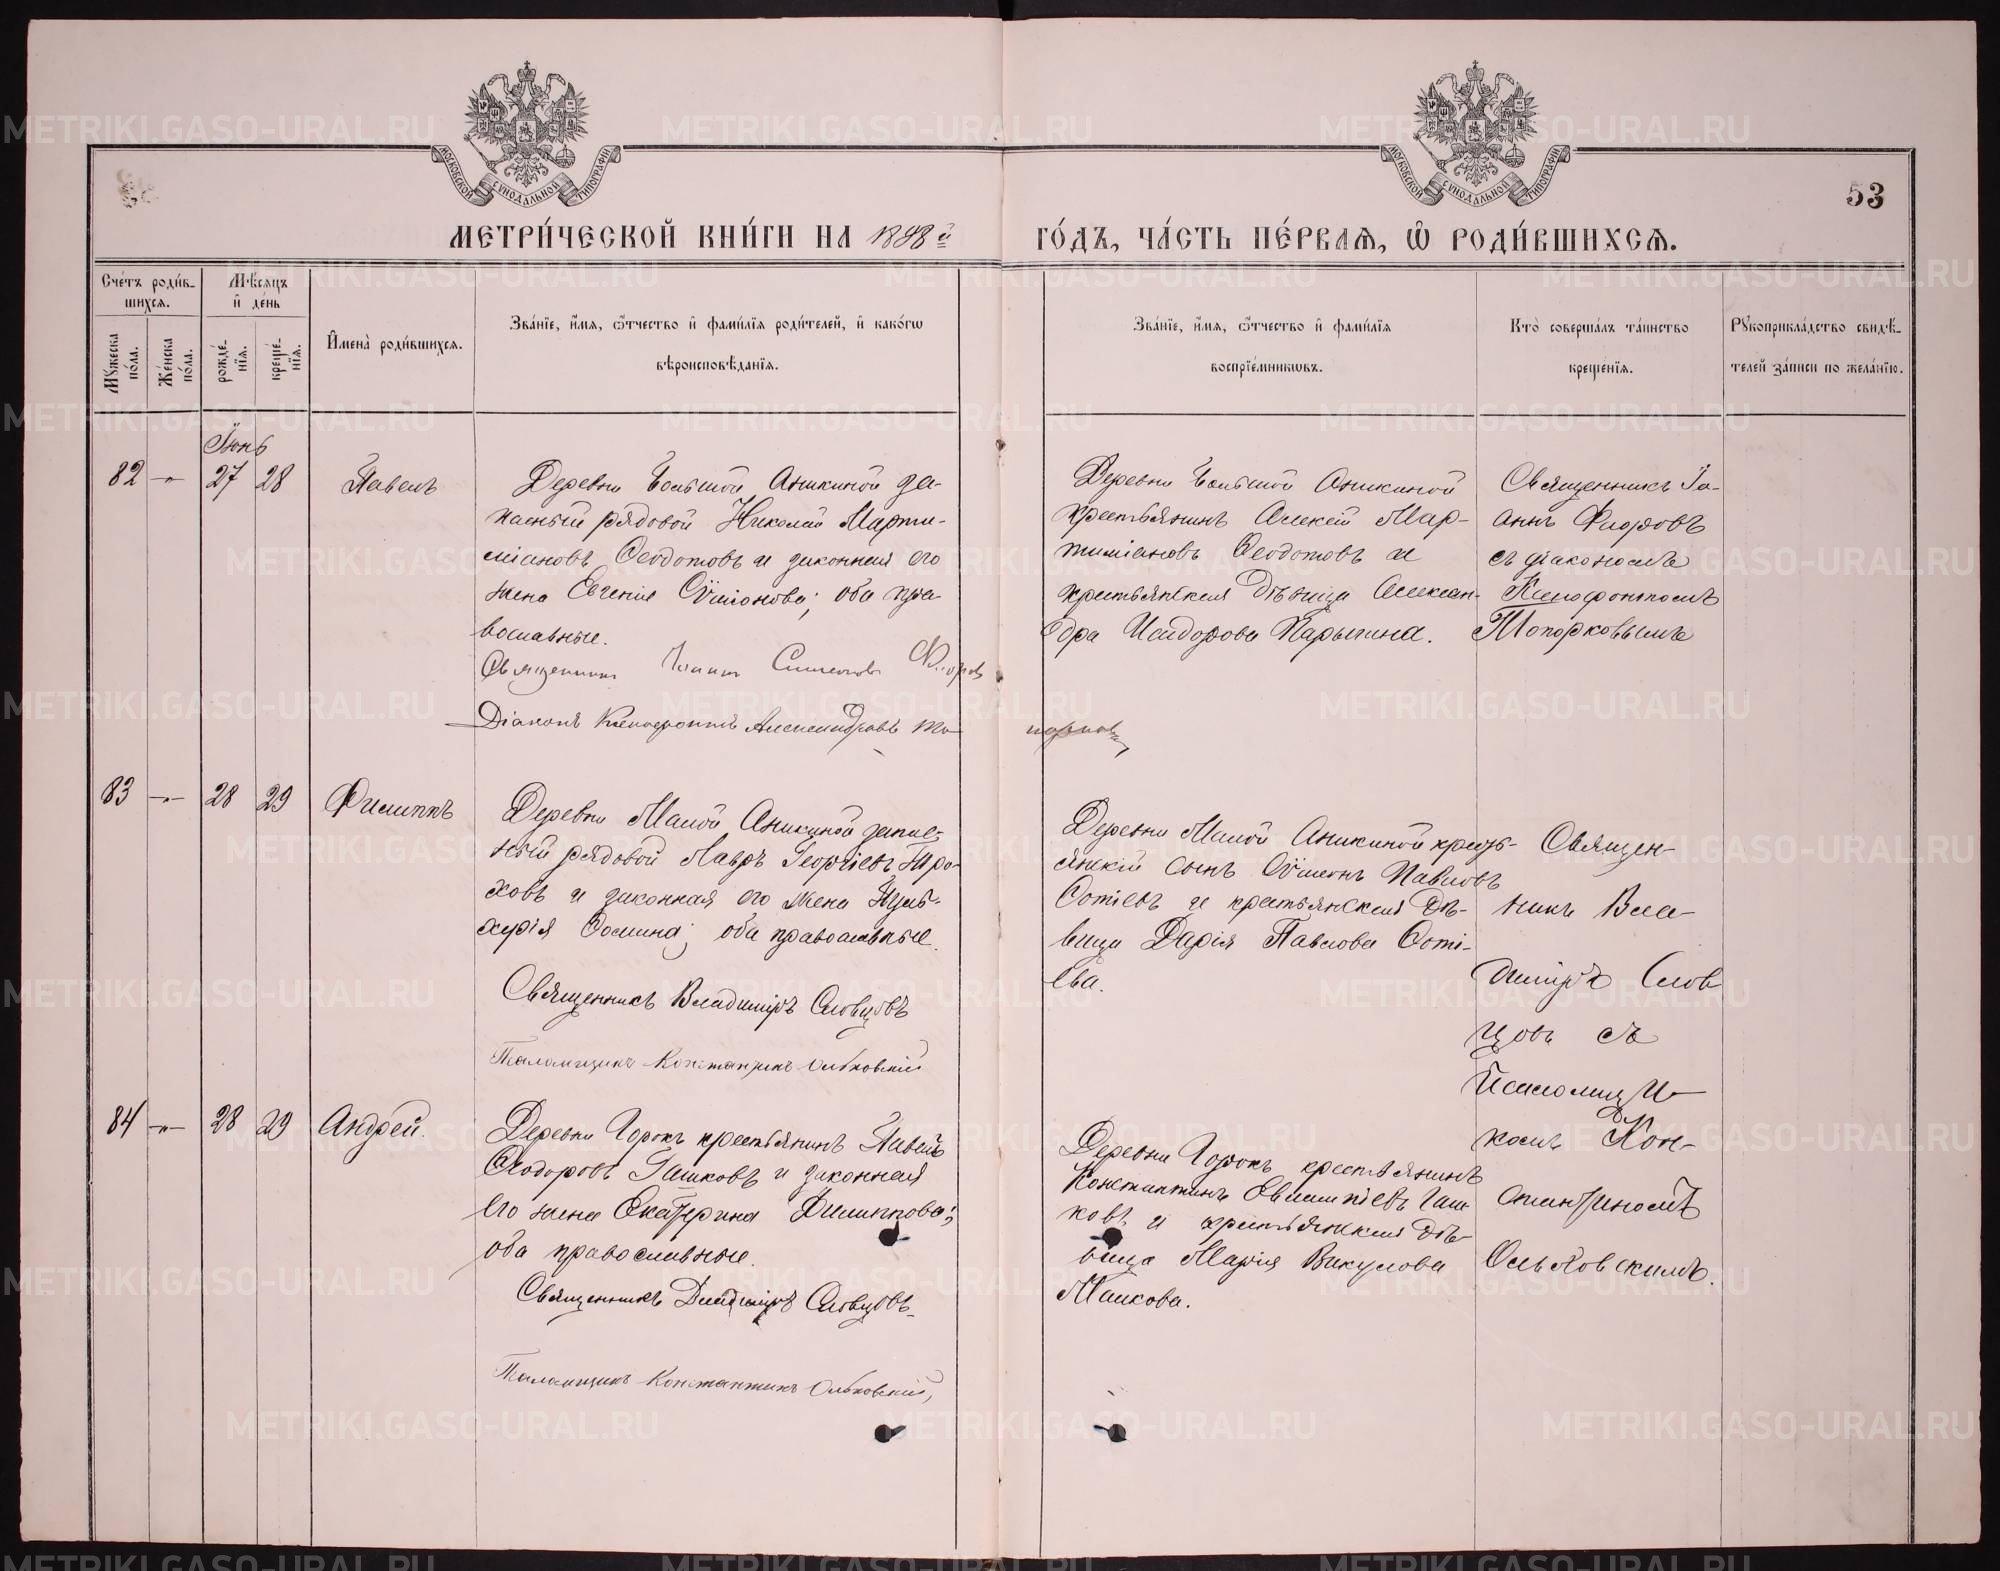 МОСКОВСКОЙ СѴНОДАЛЬНОЙ ТИПОГРАФІИ
МОСКОВСКОЙ СѴНОДАЛЬНОЙ ТИПОГРАФІИ
53
МЕТРИ́ЧЕСКОЙ КНИ́ГИ НА 1898й ГО́ДЪ, ЧА́СТЬ ПЕ́РВАѦ, Ѡ҆ РОДИ́ВШИХСѦ.
Сче́тъ роди́в-
шихсѧ.
Мѣ́сѧцъ
и҆ де́нь
Мꙋ́жеска
по́ла.
Же́нска
по́ла.
рожде́-
нїѧ.
креще́-
нїѧ.
И҆мена̀ роди́вшихсѧ.
Зва́нїе, и҆́мѧ, ѻ҆́тчество и҆ фами́лїѧ роди́телей, и҆ како́гѡ
вѣроисповѣ́данїѧ.
Зва́нїе, и҆́мѧ, ѻ҆́тчество и҆ фами́лїѧ
воспрїе́мникѡвъ.
Кто̀ соверша́лъ та́инство
креще́нїѧ.
Рꙋкоприкла́дство свидѣ́-
телей за́писи по жела́нїю.
Іюнь
82 -"- 27 28 Павелъ
Деревни Большой Аникиной за-
пасный рядовой Николай Марти-
міановъ Ѳеодотовъ и законная его
жена Евгенія Сѵмеонова; оба пра-
вославные.
Священникъ Іоаннъ Симеоновъ Флоровъ
Діаконъ Ксенофонтъ Александровъ То
порковъ
Деревни Большой Аникиной
крестьянинъ Алексій Мар-
тиміановъ Ѳеодотовъ и
крестьянская дѣвица Алексан-
дра Исидорова Парыгина.
Священникъ Іо-
аннъ Флоровъ
съ діакономъ
Ксенофонтомъ
Топорковымъ
83 -"- 28 29 Филиппъ
Деревни Малой Аникиной запас-
ный рядовой Лавръ Георгіевъ Про-
ховъ и законная его жена Пуль-
херія Ѳомина; оба православные.
Священникъ Владиміръ Словцовъ
Псаломщикъ Константинъ Ольховскій
Деревни Малой Аникиной кресть-
янскій сынъ Сѵмеонъ Павловъ
Фотіевъ и крестьянская дѣ-
вица Дарія Павлова Фоті-
ева.
Священ-
никъ Вла-
диміръ Слов
цовъ съ
Псаломщи-
комъ Кон-
стантиномъ
Ольховскимъ.
84 -"- 28 29 Андрей.
Деревни Горокъ крестьянинъ Павелъ
Ѳеодоровъ Гашковъ и законная
его жена Екатерина Филиппова;
оба православные.
Священникъ Владиміръ Словцовъ
Псаломщикъ Константинъ Ольховскій,
Деревни Горокъ крестьянинъ
Константинъ Евлампіевъ Гаш-
ковъ и крестьянская дѣ-
вица Марія Викулова
Машкова.
METRIKI.GASO-URAL.RU